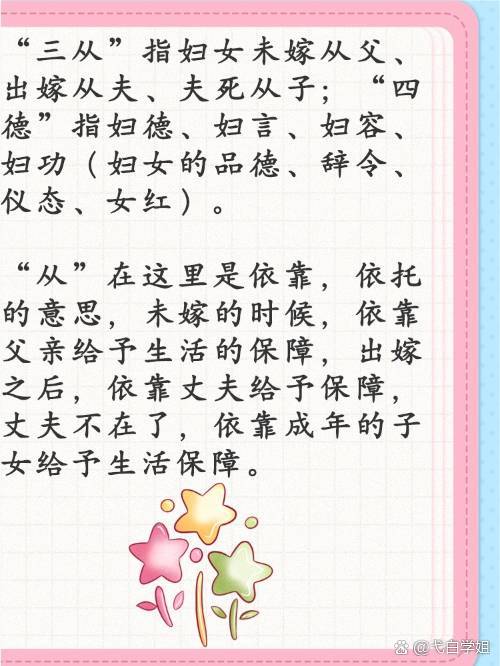 “三从”指妇女未嫁从父、
出嫁从夫、夫死从子；“四
德”指妇德、妇言、妇容、
妇功（妇女的品德、辞令、
仪态、女红）。
“从”在这里是依靠，依托
的意思，未嫁的时候，依靠
父亲给予生活的保障，出嫁
之后，依靠丈夫给予保障，
丈夫不在了，依靠成年的子
女给予生活保障。
@弋白学姐